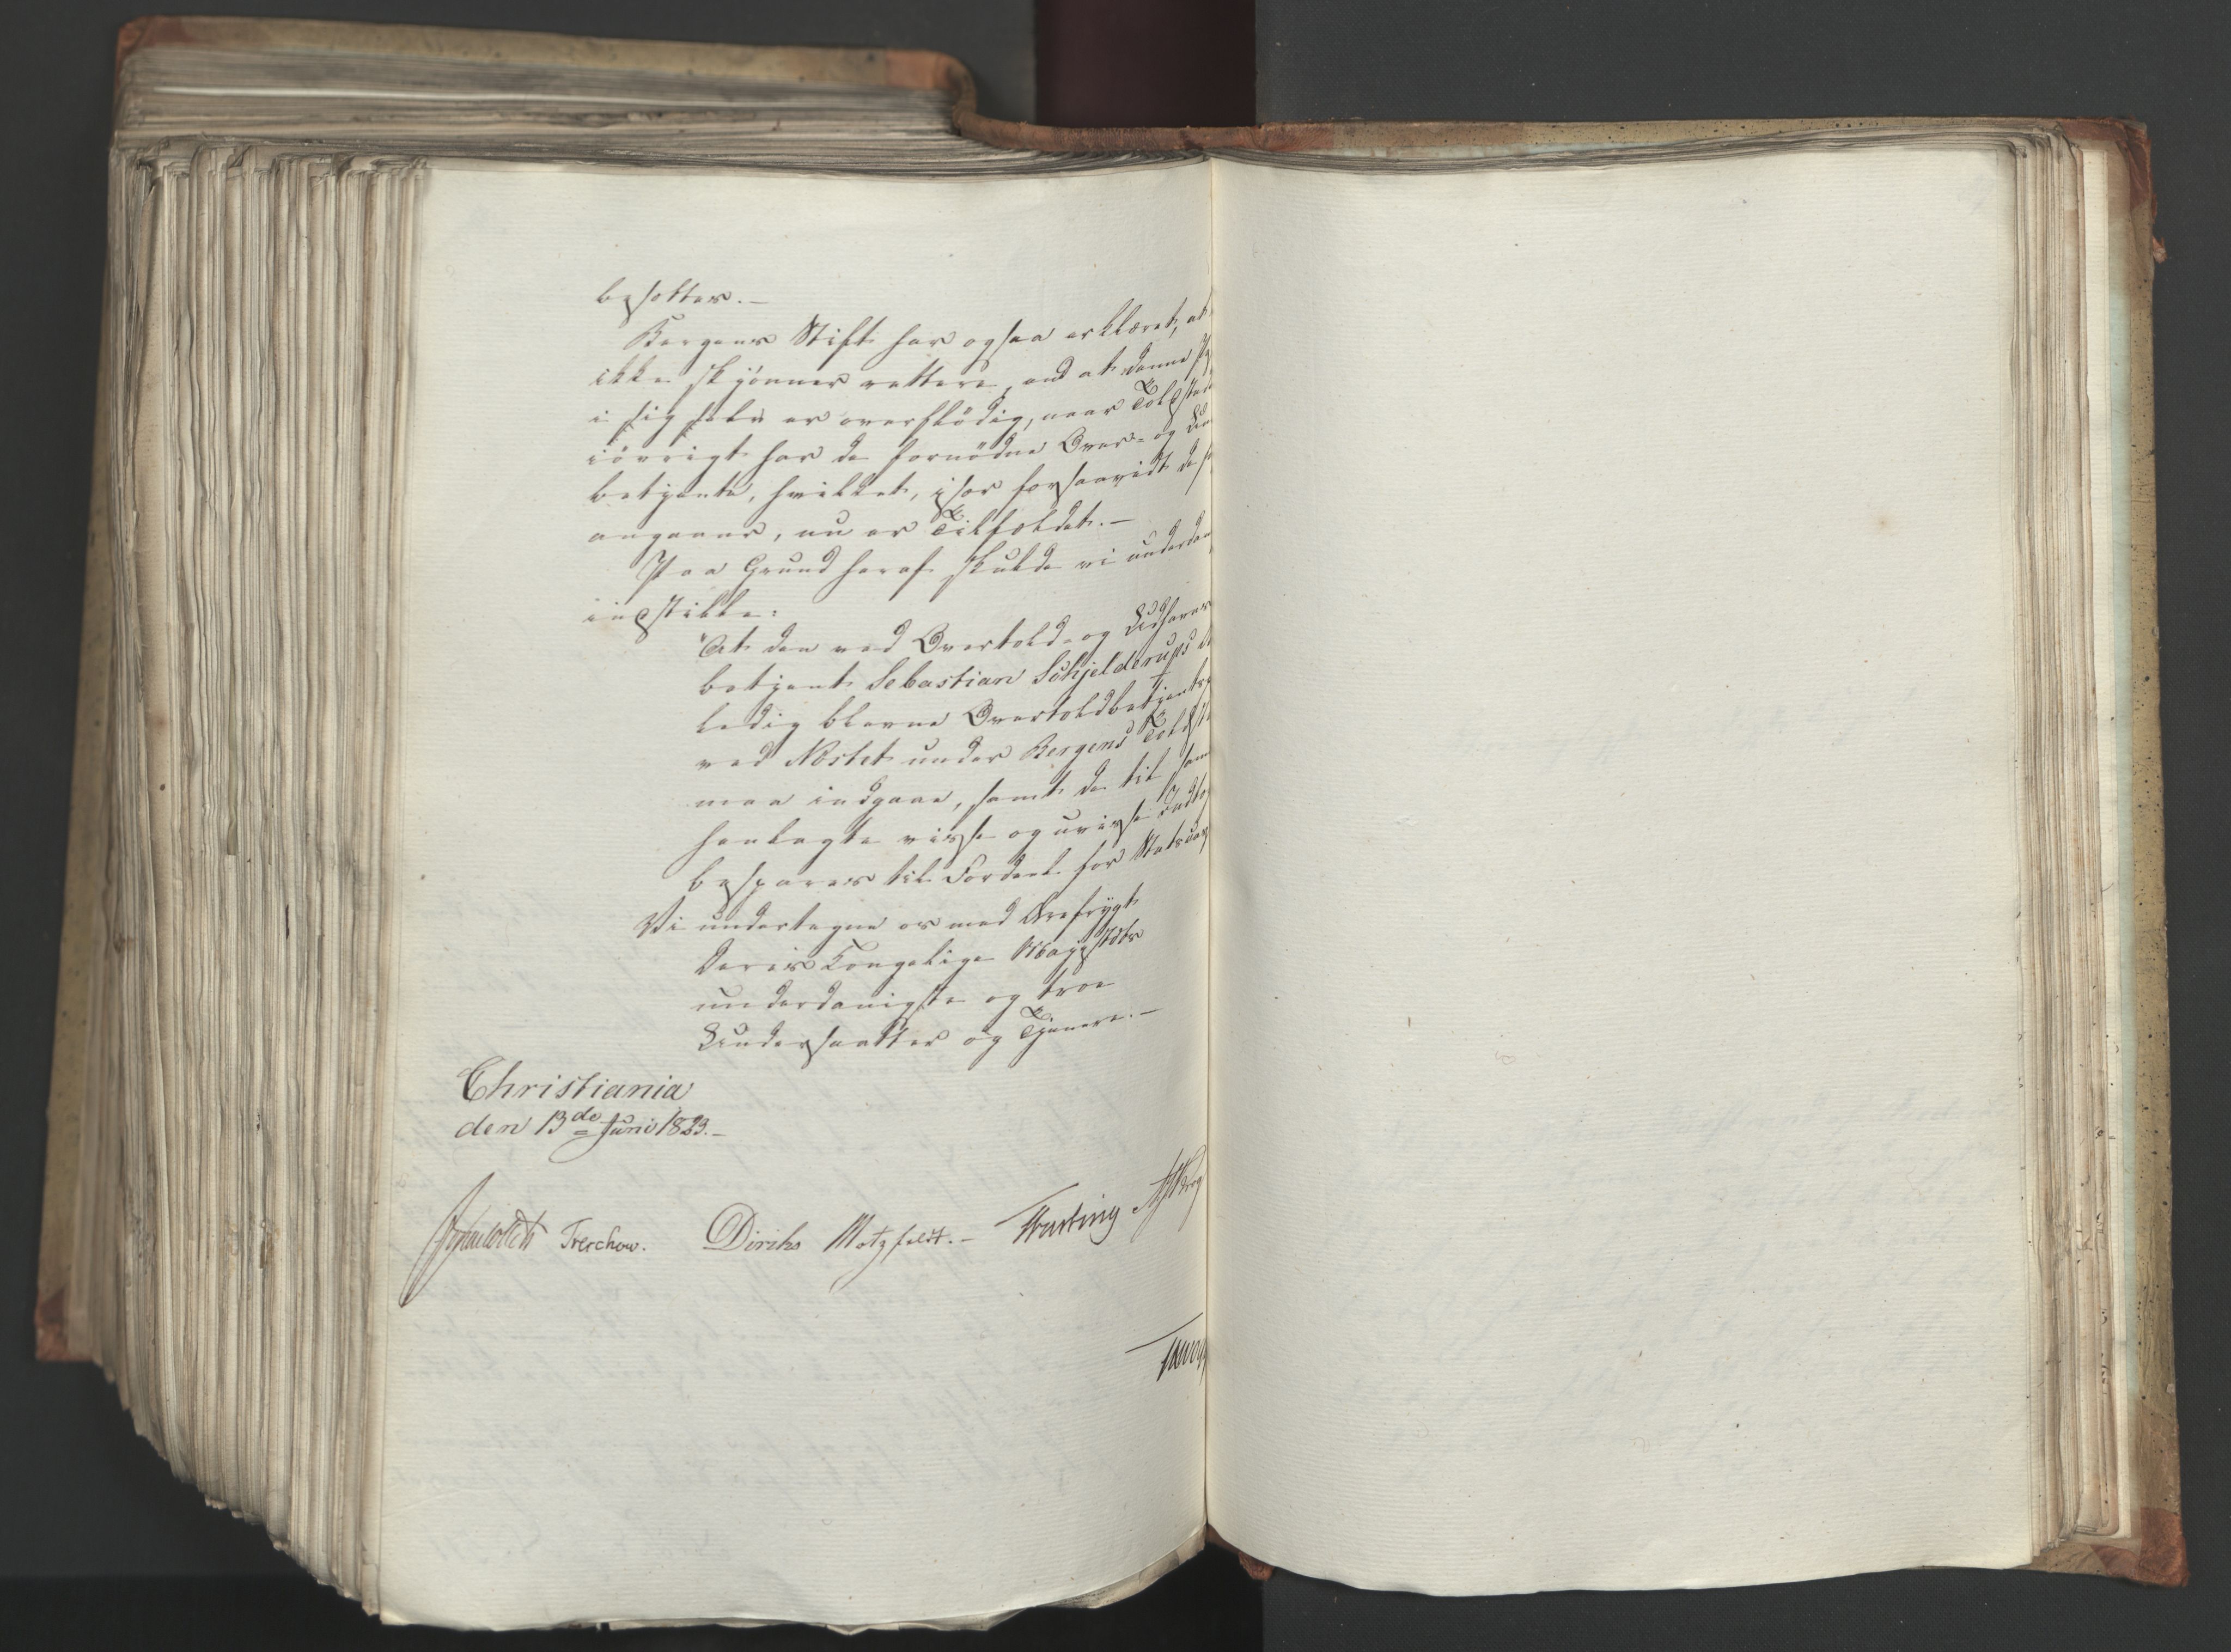 besættes.—
Bergens Stift har ogsaa erklæret, at
ikke skjönner rettere, end at denne
i sig selv er overflödig, naar Toldsted
iövrigt har de fornödne Over- og Un
betjente, hvilket, især forsaavidt de
angaaer, nu er Tilfældet.—
Paa Grund heraf skulde vi underdan
indstille:
"At den ved Overtold- og Udhavns
betjent Sebastian Schjelderups
ledig blevne Overtoldbetjentp
ved Nöstet under Bergens Toldst
maa indgaae, samt de til sam
henlagte visse og uvisse Indtæ
bespares til Fordeel for Statscas
Vi undertegne os med Ærefrygt
Deres Kongelige Majestæts
underdanigste og troe
Undersaatter og Tjenere.—
Christiania
den 13de Juni 1823.—
Treschow. Diriks Motzfeldt.— Fasting